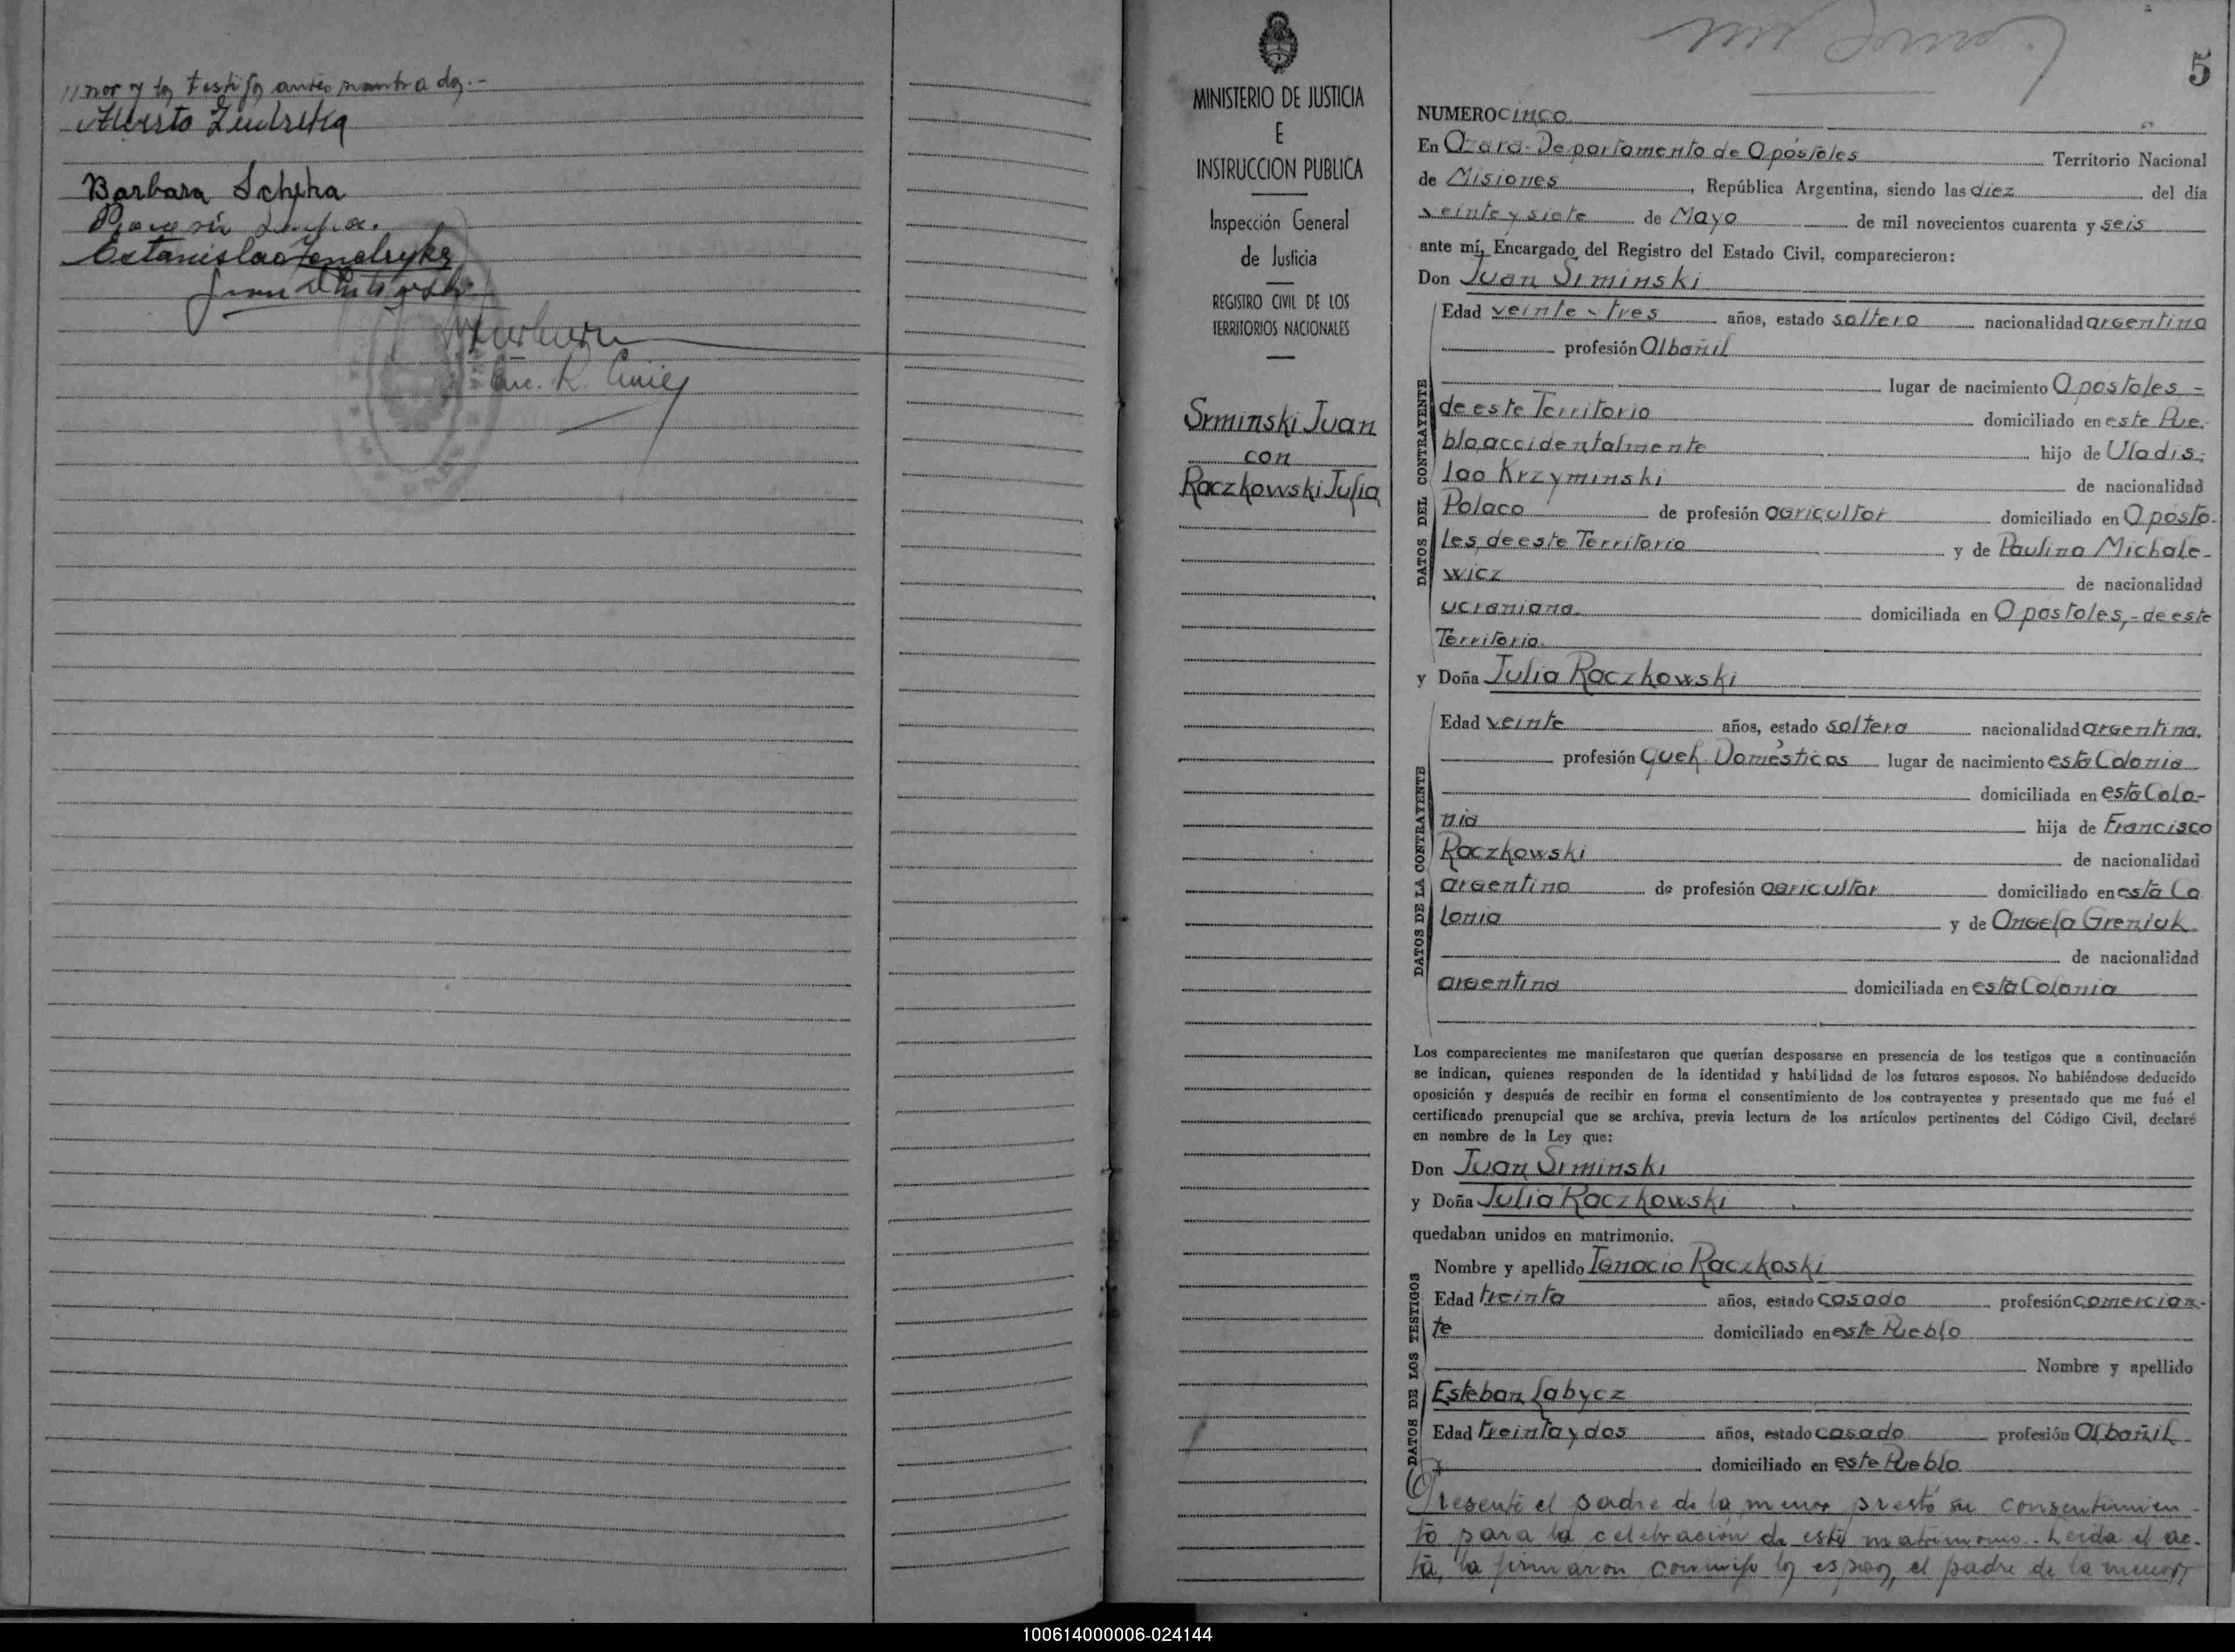 nor y los testigos antes nombrados.-
Alberto
Barbara Scheka
Estanislao Zendryka
Juan
Enc. R. Civil
MINISTERIO DE JUSTICIA
E
INSTRUCCION PUBLICA
Inspección General
de Justicia
REGISTRO CIVIL DE LOS
TERRITORIOS NACIONALES
Srminski Juan
con
Raczkowski Julia
5
NUMERO cinco
En Azara-Departamento de Apóstoles Territorio Nacional
de Misiones, República Argentina, siendo las diez del día
veinte y siete de Mayo de mil novecientos cuarenta y seis
ante mí, Encargado del Registro del Estado Civil, comparecieron:
Don Juan Srminski
DATOS DEL CONTRAYENTE
Edad veinte y tres años, estado soltero nacionalidad argentina
profesión Albañil
lugar de nacimiento Apostoles-
de este Territorio domiciliado en este Pue-
blo accidentalmente hijo de Uladis-
lao Krzyminski de nacionalidad
Polaco de profesión agricultor domiciliado en Aposto-
les, de este Territorio y de Paulina Michale-
wicz de nacionalidad
ucraniana. domiciliada en Apostoles,-de este
Territorio.
y Doña Julia Raczkowski
DATOS DE LA CONTRAYENTE
Edad veinte años, estado soltera nacionalidad argentina.
profesión Queh. Domésticos lugar de nacimiento esta Colonia
domiciliada en esta Colo-
nia hija de Francisco
Raczkowski de nacionalidad
argentino de profesión agricultor domiciliado en esta Co
lonia y de Angela Greniuk
de nacionalidad
argentina domiciliada en esta Colonia
Los comparecientes me manifestaron que querían desposarse en presencia de los testigos que a continuación
se indican, quienes responden de la identidad y habilidad de los futuros esposos. No habiéndose deducido
oposición y después de recibir en forma el consentimiento de los contrayentes y presentado que me fué el
certificado prenupcial que se archiva, previa lectura de los artículos pertinentes del Código Civil, declaré
en nombre de la Ley que:
Don Juan Srminski
y Doña Julia Raczkowski
quedaban unidos en matrimonio.
DATOS DE LOS TESTIGOS
Nombre y apellido Ignacio Raczkoski
Edad treinta años, estado casado profesión comercian-
te domiciliado en este Pueblo
Nombre y apellido
Esteban Labycz
Edad treinta y dos años, estado casado profesión Albañil
domiciliado en este Pueblo
Presente el padre de la menor prestó su consentimien-
to para la celebración de este matrimonio. Leída el ac-
ta, la firmaron conmigo los esposos, el padre de la menor,
100614000006-024144